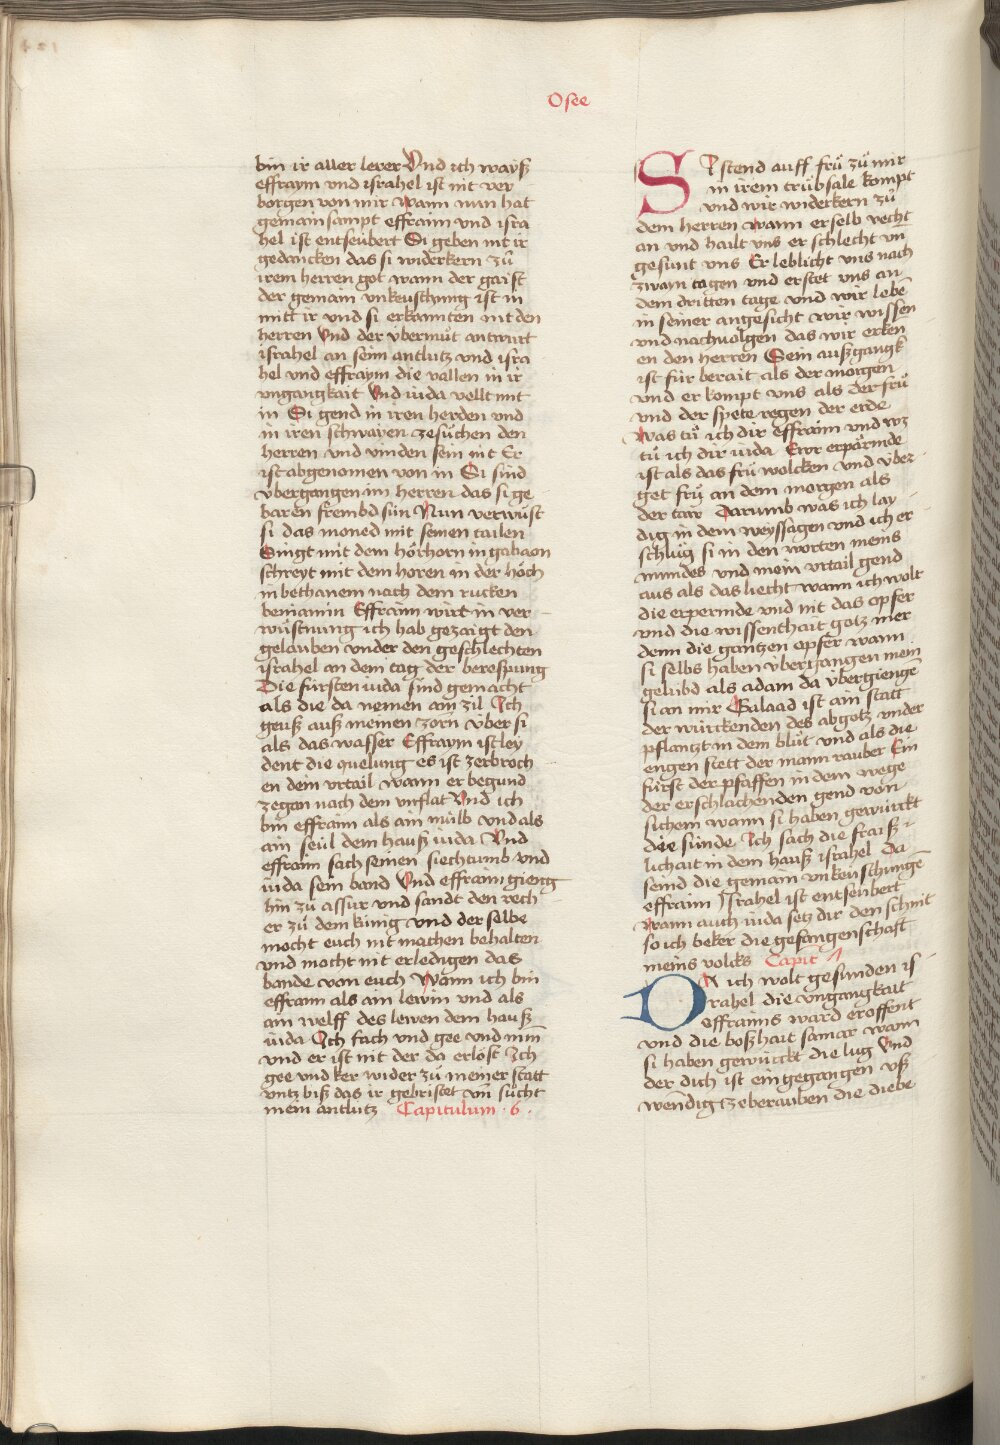 Osee
bin ir aller lerer Vnd ich wayß
effraym vnd israhel ist nit ver
borgen von mir Wann nun hat
gemainsampt effraim vnd isra
hel ist entseubert Si geben nit ir
gedancken das si widerkern zů
irem herren got wann der gaist
der gemain vnkeuschung ist in
mitt ir vnd si erkannten nit den
herren Vnd der übermůt antwurt
israhel an seim antlutz vnd isra
hel vnd effraym die vallen in ir
vngangkait Vnd iuda vellt mit
in Si gend in iren herden vnd
in iren schwayen zesůchen den
herren vnd vinden sein nit Er
ist abgenomen von in Si sind
vbergangen im herren das si ge
baren frembd sün Nun verwüst
si das moned mit seinen tailen
Singt mit dem hörhorn in gabaon
schreyt mit dem horen in der höch
in bethanem nach dem rucken
beniamin Effraim wirt in ver
wüstnung ich hab gezaigt den
gelauben vnder den geschlechten
israhel an dem tag der berespung
Die fürsten iuda sind gemacht
als die da nemen ain zil Ich
geuß auß meinen zorn über si
als das wasser Effraym ist ley
dent die quelung es ist zerbroch
en dem vrtail wann er begund
zegan nach dem vnflat Vnd ich
bin effraim als ain milb vnd als
ain seül dem hauß iuda Vnd
effraim sach seinen siechtumb vnd
iuda sein band Vnd effraim gieng
hin zů assur vnd sandt den rech
er zů dem künig vnd der selbe
mocht euch nit machen behalten
vnd mocht nit erledigen das
bande von euch Wann ich bin
effraim als ain lewin vnd als
ain welff des lewen dem hauß
iuda Ich fach vnd gee vnd nim
vnd er ist nit der da erlöst Ich
gee vnd ker wider zů meiner statt
vntz biß das ir gebristet vn̄ sůcht
mein antlutz Capitulum · 6 ·
SI stend auff frů zů mir
in irem trübsale kompt
vnd wir widerkern zů
dem herren wann er selb vecht
an vnd hailt vns er schlecht vn̄
gesunt vns Er leblicht vns nach
zwain tagen vnd erstet vns an
dem dritten tage vnd wir lebē
in seiner angesicht wir wissen
vnd nachuolgen das wir erken
en den herren Sein außgangk
ist für berait als der morgen
vnd er kompt vns als der frů
vnd der spete regen der erde
Was tů ich dir effraim vnd wz
tů ich dir iuda Ewr erpärmde
ist als das frů wolcken vnd über
get frů an dem morgen als
der taw Darumb was ich lay
dig in dem weyssagen vnd ich er
schlůg si in den worten meins
mundes vnd mein vrtail gend
aus als das liecht wann ich wolt
die erpermde vnd nit das opfer
vnd die wissenthait gotz mer
denn die gantzen opfer wann
si selbs haben übergangen mein
gelübd als adam da übergiengē
si an mir Galaad ist ain statt
der würckenden des abgotz vnder
pflantzt in dem blůt vnd als die
engen stett der mann rauber Ein
fürst der pfaffen in dem wege
der erschlachenden gend von
sichem wann si haben gewürckt
die sünde Ich sach die fraiß
lichait in dem hauß israhel da
seind die gemain vnkeuschungē
effraim Israhel ist entseubert
Wann auch iuda setz dir den schnit
so ich beker die gefangenschaft
meins volcks Capit 7
DA ich wolt gesunden is
rahel die vngangkait
effraims ward eroffent
vnd die boßhait samar wann
si haben gewürckt die lug Vnd
der dich ist eingegangen vß
wendig zeberauben die diebe